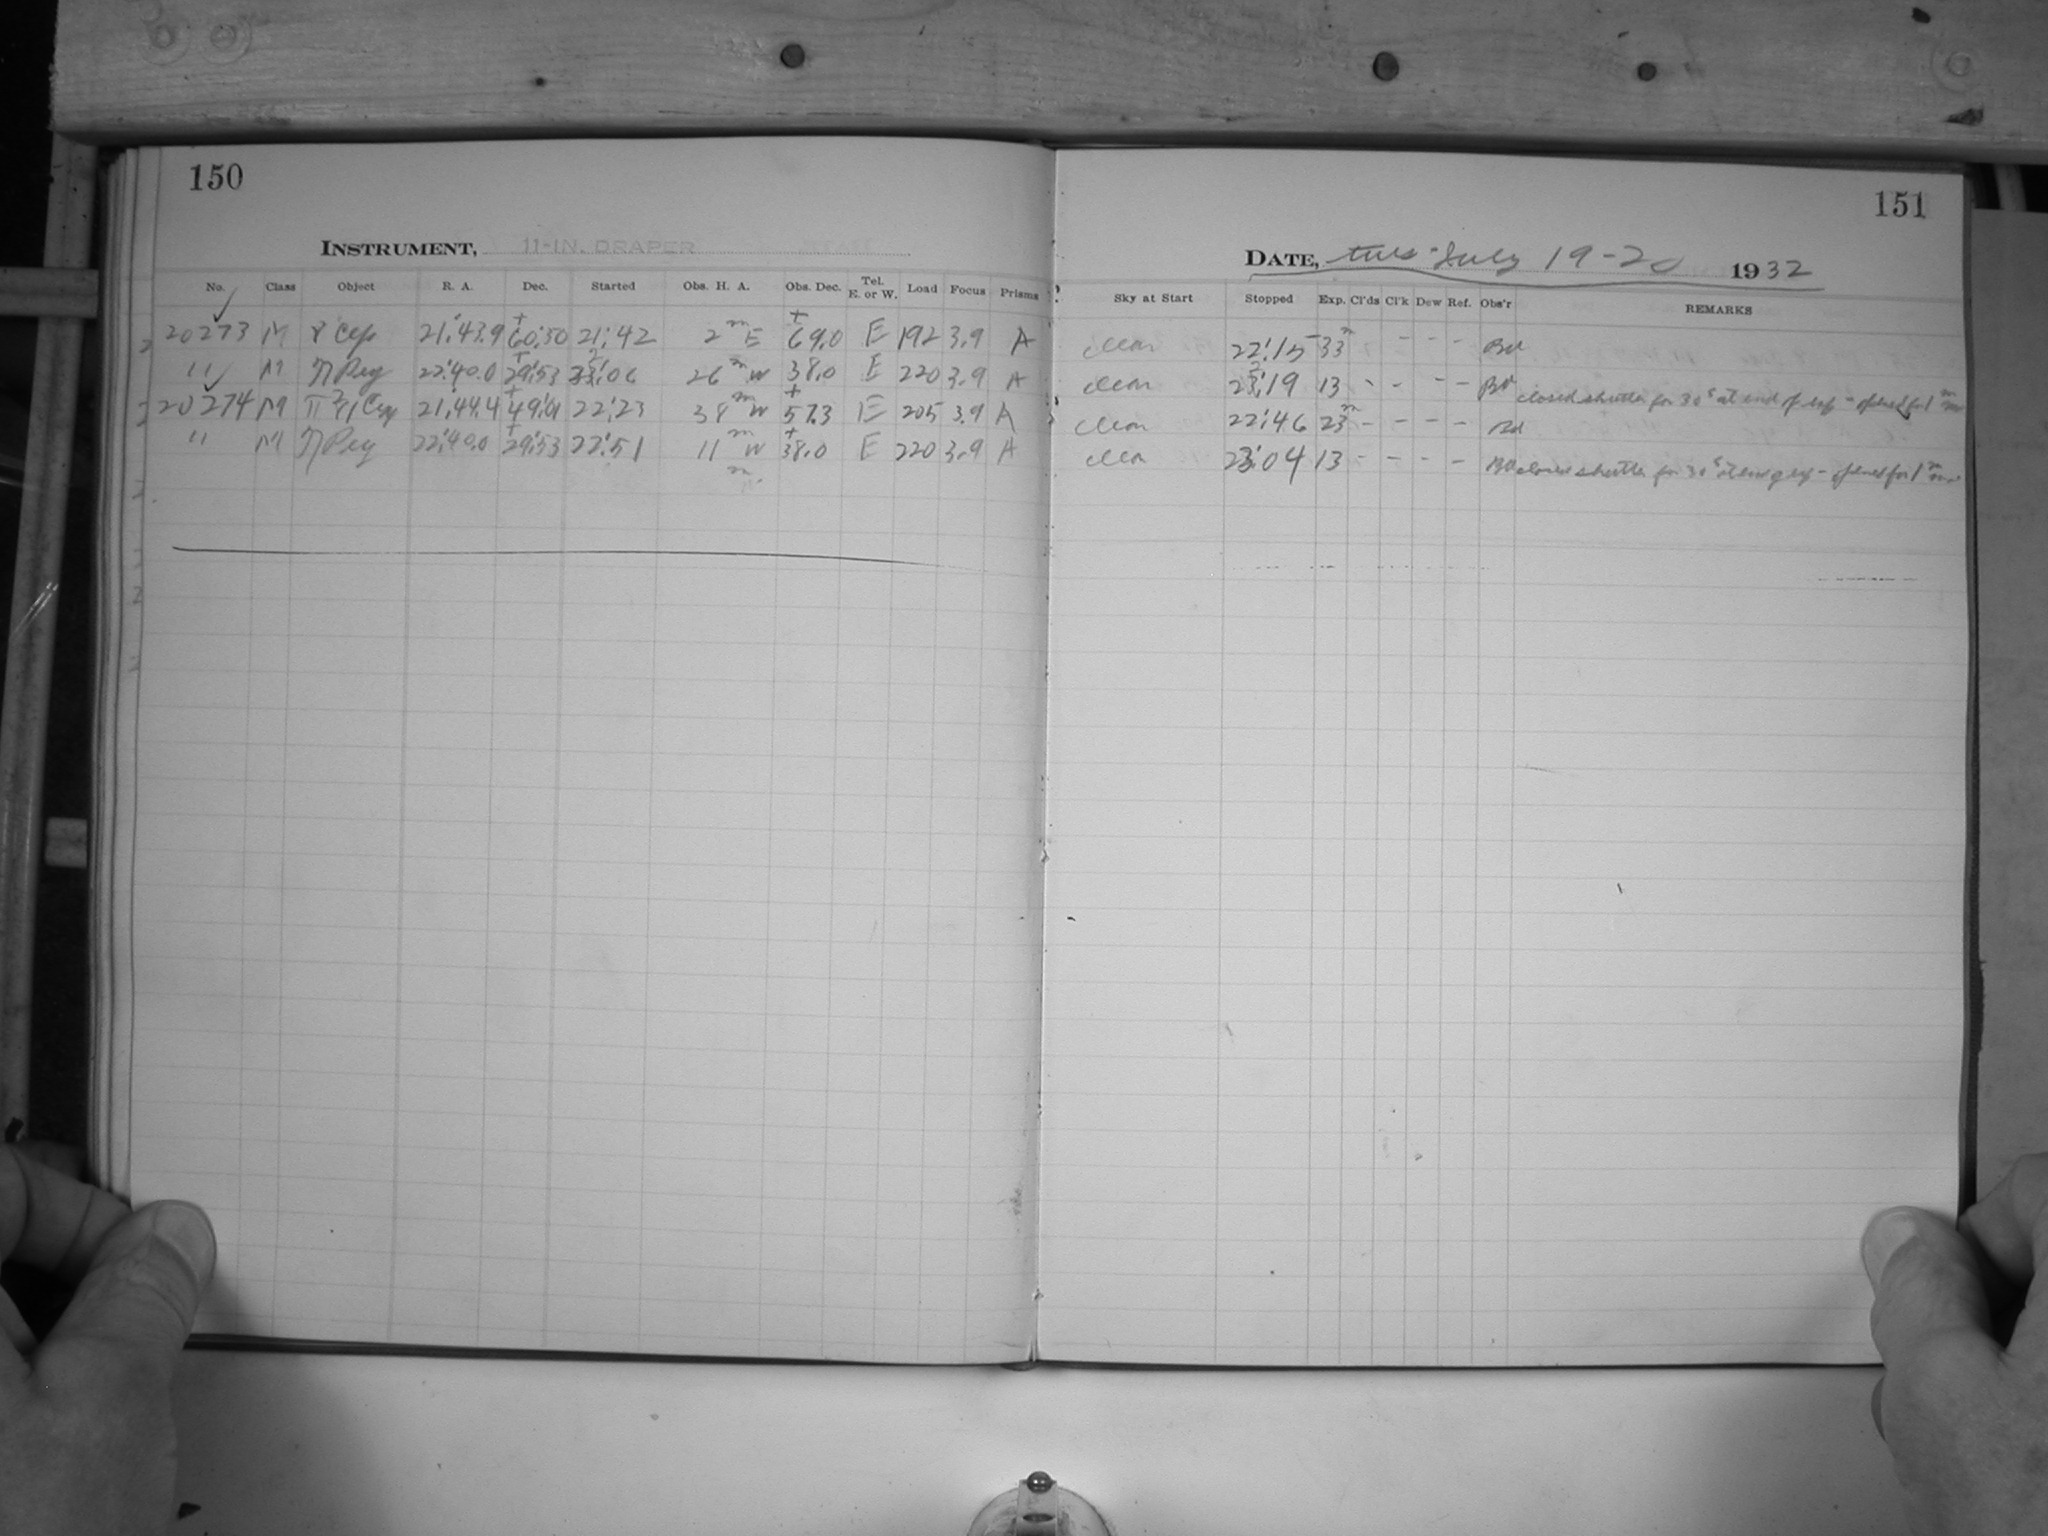 150
INSTRUMENT, 11-IN. DRAPER
No. Class Object R. A. Dec. Started Obs. H. A. Obs. Dec. Tel. E. or W. Load Focus Prisms
20273 M Cep 21:43.9 +60:50 21:42 2m E +69.0 E 192 3.9 A
" M η Peg 22:40.0 +29:53 :06 26m W 38.0 E 220 3.9 A
20274 M π² Cyg 21:44.4 +49: 22:23 38m W +57.3 E 205 3.9 A
" M η Peg 22:40.0 +29:53 22:51 11m W +38.0 E 220 3.9 A
m
151
DATE, Tues - July 19-20 1932
Sky at Start Stopped Exp. Cl'ds Cl'k Dew Ref. Obs'r REMARKS
clear 22:15 33m - - - Bd
clear :19 13 - - - - Bd closed shutter for 30s at end of exp - opened for 1m
clear 22:46 23m - - - - Bd
clear 23:04 13 - - - - Bd closed shutter for 30s at end of exp - opened for 1m